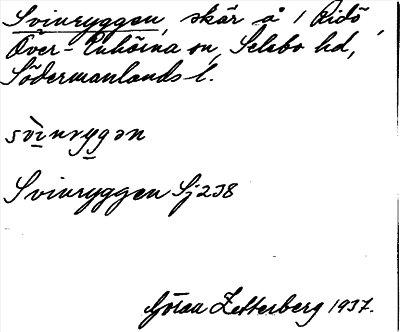 Svinryggen, skär å / Ridö,
Över-Enhörna sn, Selebo hd,
Södermanlands l.
svìnrygən
Svinryggen Sj 238
Göran Zetterberg 1937.